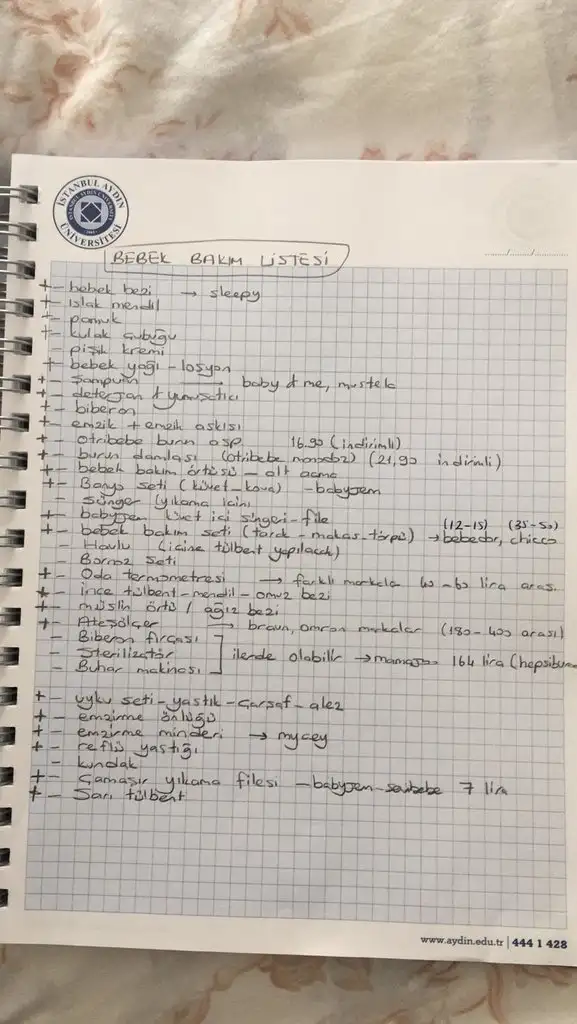 İSTANBUL AYDIN ÜNİVERSİTESİ
BEBEK BAKIM LİSTESİ
...../...../..........
+ - bebek bezi → sleepy
+ - ıslak mendil
+ - pamuk
+ - kulak çubuğu
- pişik kremi
+ - bebek yağı - losyon
+ - şampuan → baby & me, mustela
+ - deterjan + yumuşatıcı
+ - biberon
+ - emzik + emzik askısı
+ - otribebe burun asp. 16.90 (indirimli)
+ - burun damlası (otribebe monodoz) (21,90 indirimli)
+ - bebek bakım örtüsü - alt açma
+ - Banyo seti (küvet - kova) - babyjem
- sünger (yıkama için)
+ - babyjem küvet içi süngeri - file (12-15) (35-50)
+ - bebek bakım seti (tarak - makas - törpü) → bebedor, chicco
- Havlu (içine tülbent yapılacak)
- Bornoz seti
+ - Oda termometresi → farklı markala 40 - 60 lira aras.
+ - ince tülbent - mendil - omuz bezi
+ - müslin örtü / ağız bezi
+ - Ateşölçer → braun, omron markalar (180 - 400 arası)
- Biberon fırçası
- Sterilizatör ilerde olabilir → mamajoo 164 lira (hepsibu
- Buhar makinası
+ - uyku seti - yastık - çarşaf - alez
+ - emzirme önlüğü
+ - emzirme minderi → mycey
+ - reflü yastığı
- kundak
+ - Çamaşır yıkama filesi - babyjem - sevibebe 7 lira
+ - Sarı tülbent
www.aydin.edu.tr | 444 1 428